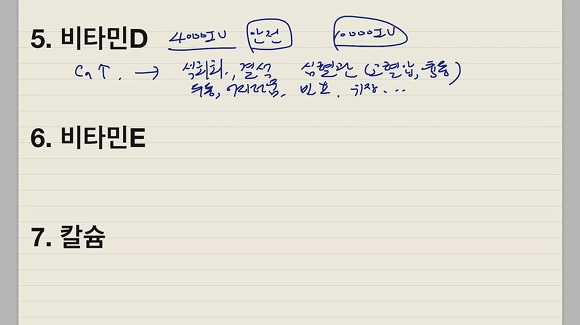 5. 비타민D 4000IU 안전 10000IU
Ca↑. → 석회화, 결석 심혈관 (고혈압, 흉통)
두통, 어지러움, 빈호, 위장...
6. 비타민E
7. 칼슘